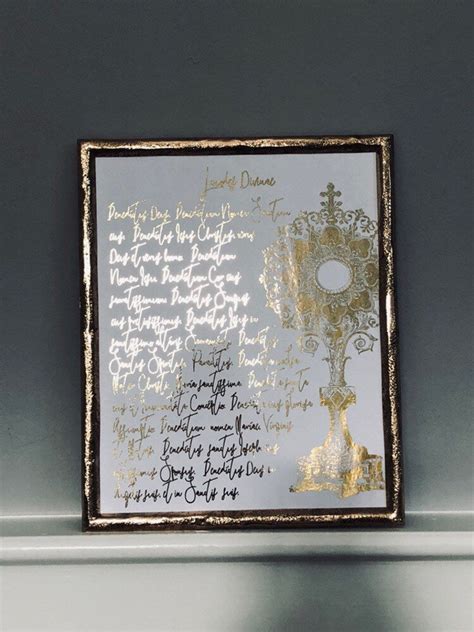 Laudes Divinae
Benedictus Deus. Benedictum Nomen Sanctum
eius. Benedictus Iesus Christus, verus
Deus et verus homo. Benedictum
Nomen Iesu. Benedictum Cor eius
sacratissimum. Benedictus Sanguis
eius pretiosissimus. Benedictus Iesus in
sanctissimo altaris Sacramento. Benedictus
Sanctus Spiritus, Paraclitus. Benedicta
Mater Christi, Maria sanctissima. Benedicta sancta
eius et immaculata Conceptio. Benedicta eius gloriosa
Assumptio. Benedictum nomen Mariae, Virginis
et Matris. Benedictus sanctus Ioseph, eius
castissimus Sponsus. Benedictus Deus in
Angelis suis, et in Sanctis suis.